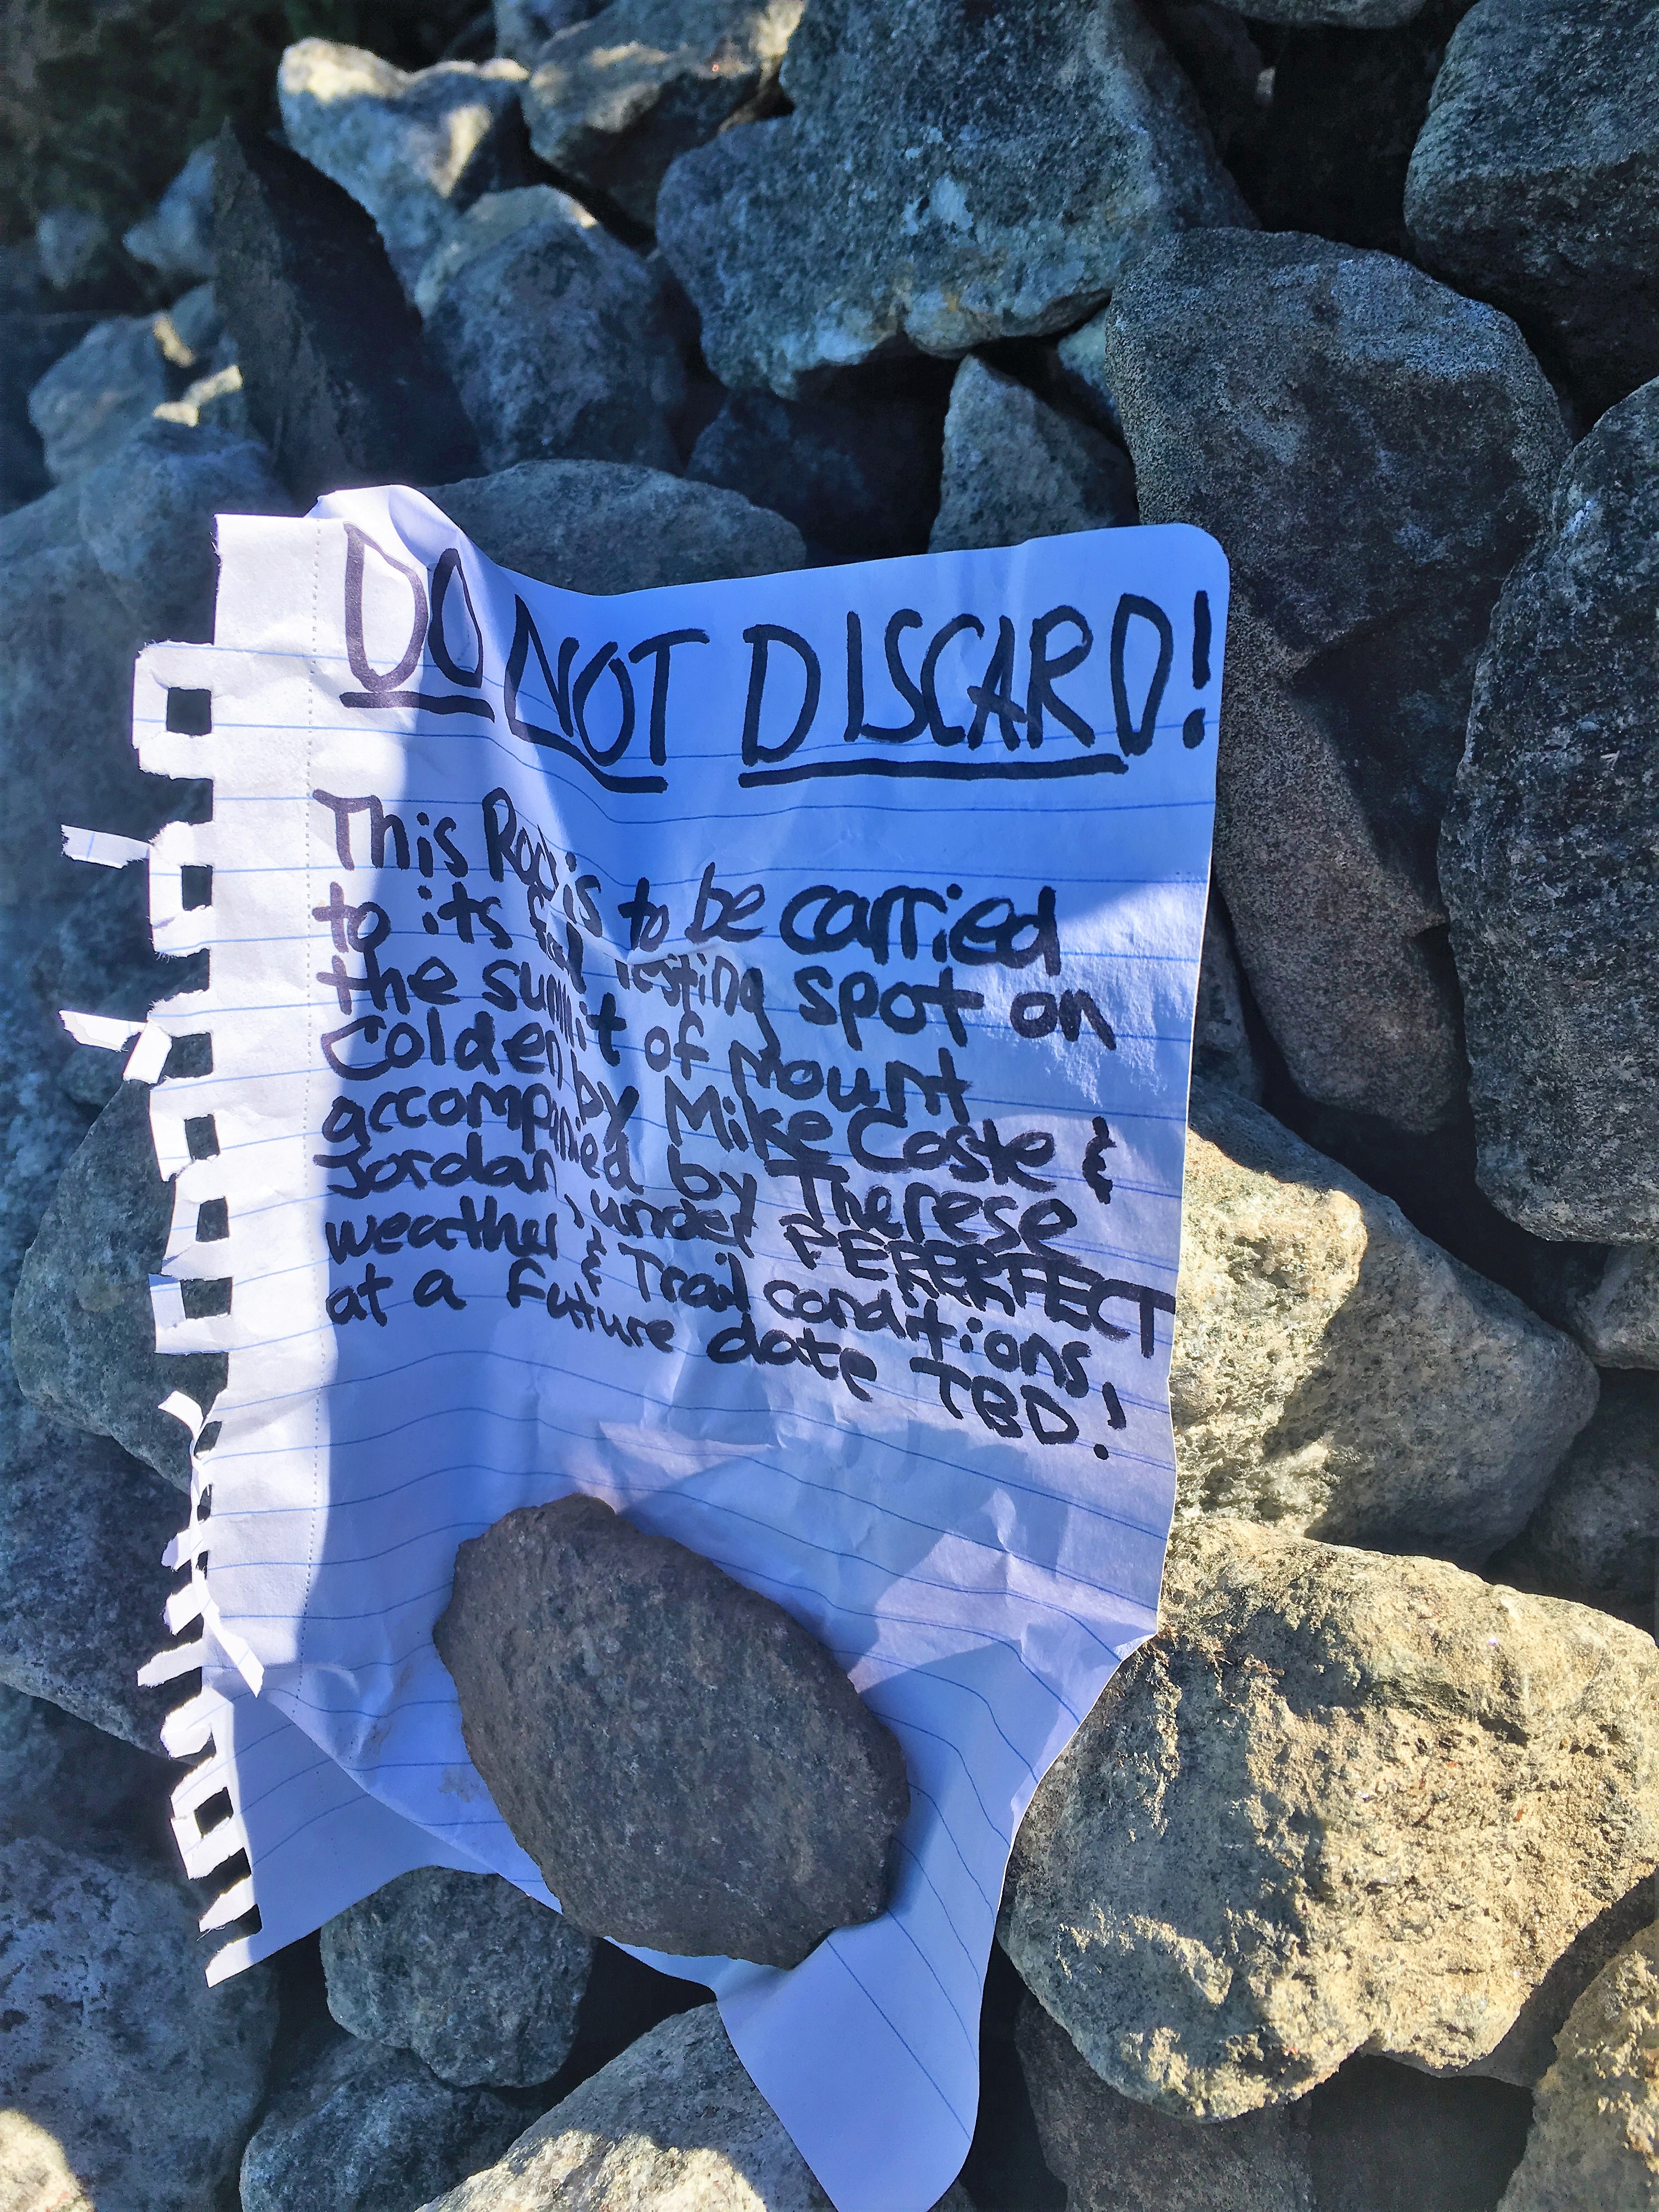 DO NOT DISCARD!
This Rock is to be carried
to its final resting spot on
the summit of Mount
Colden by Mike Coste &
accompanied by Therese
Jordan, under PERFECT
weather & Trail conditions,
at a future date TBD!